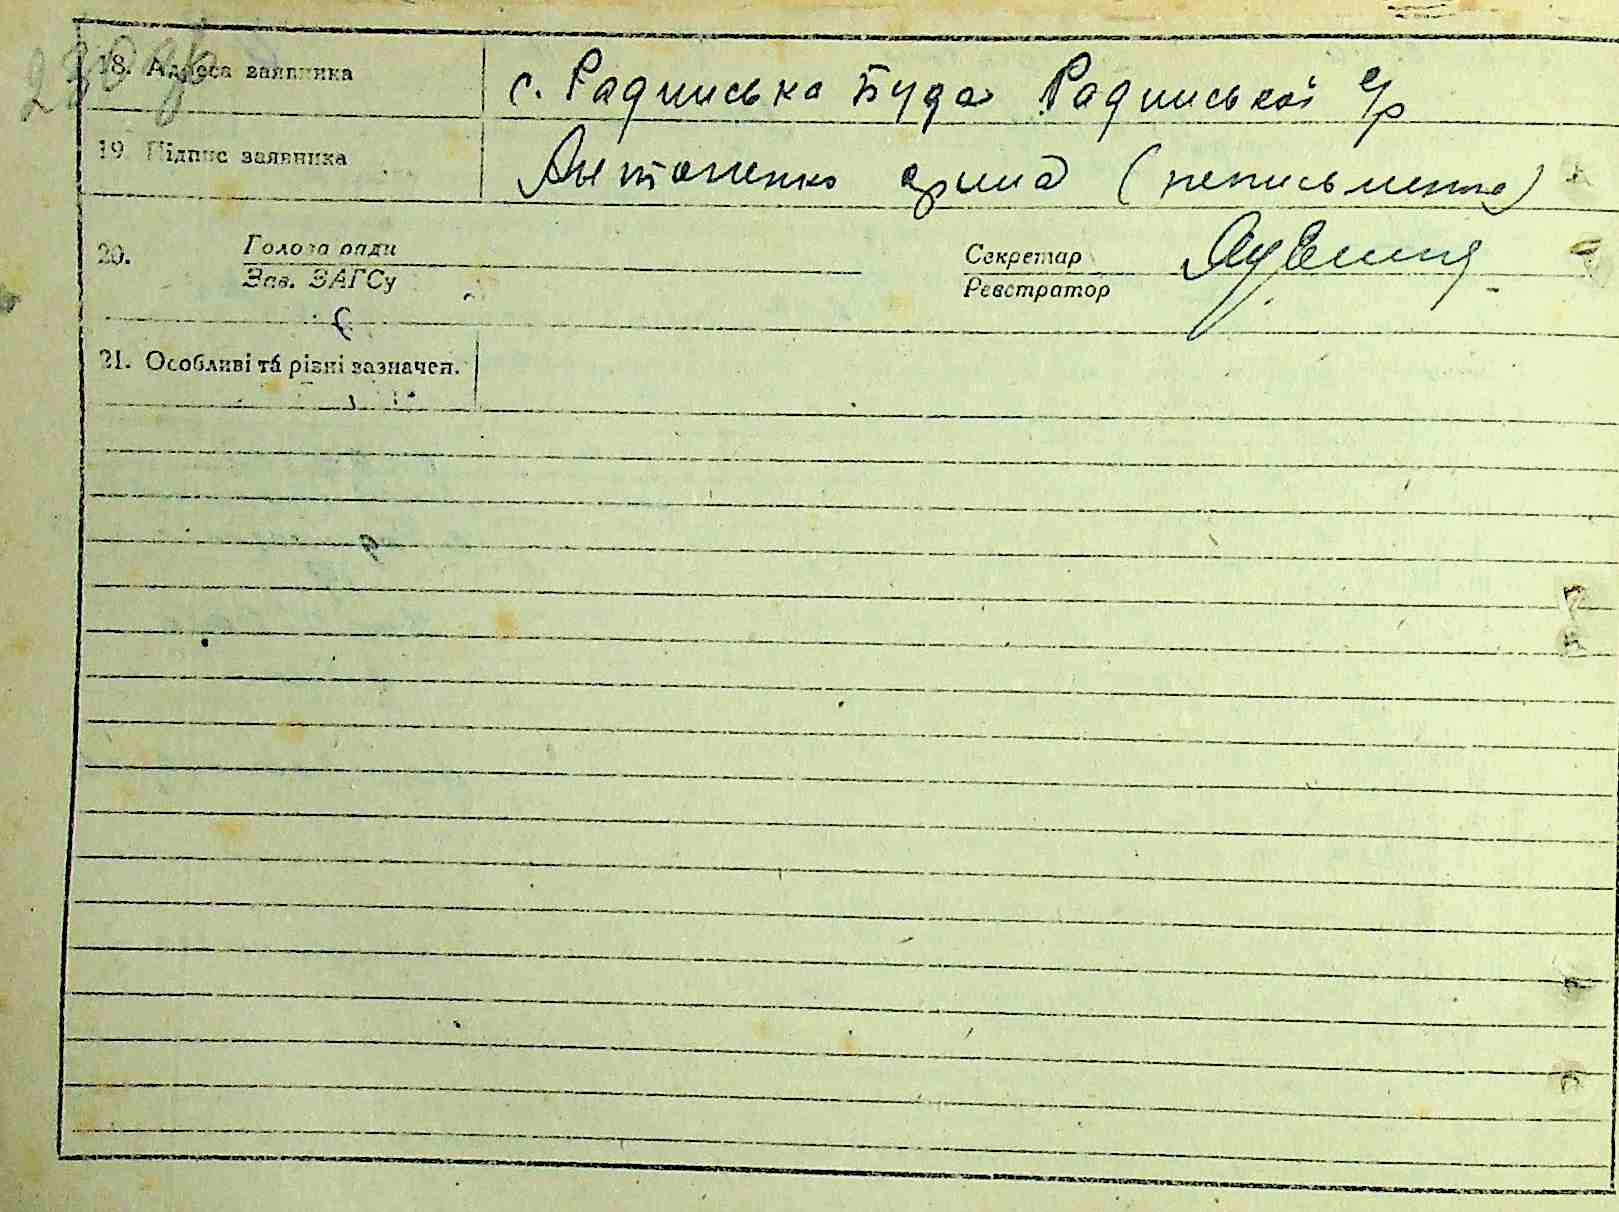 230 зв
18. Адреса заявника с. Радинська Буда Радинської с/р
19. Підпис заявника Антоненко Ярина (неписьменна)
20. Голова ради Секретар
Зав. ЗАГСу Реєстратор
21. Особливі та різні зазначен.